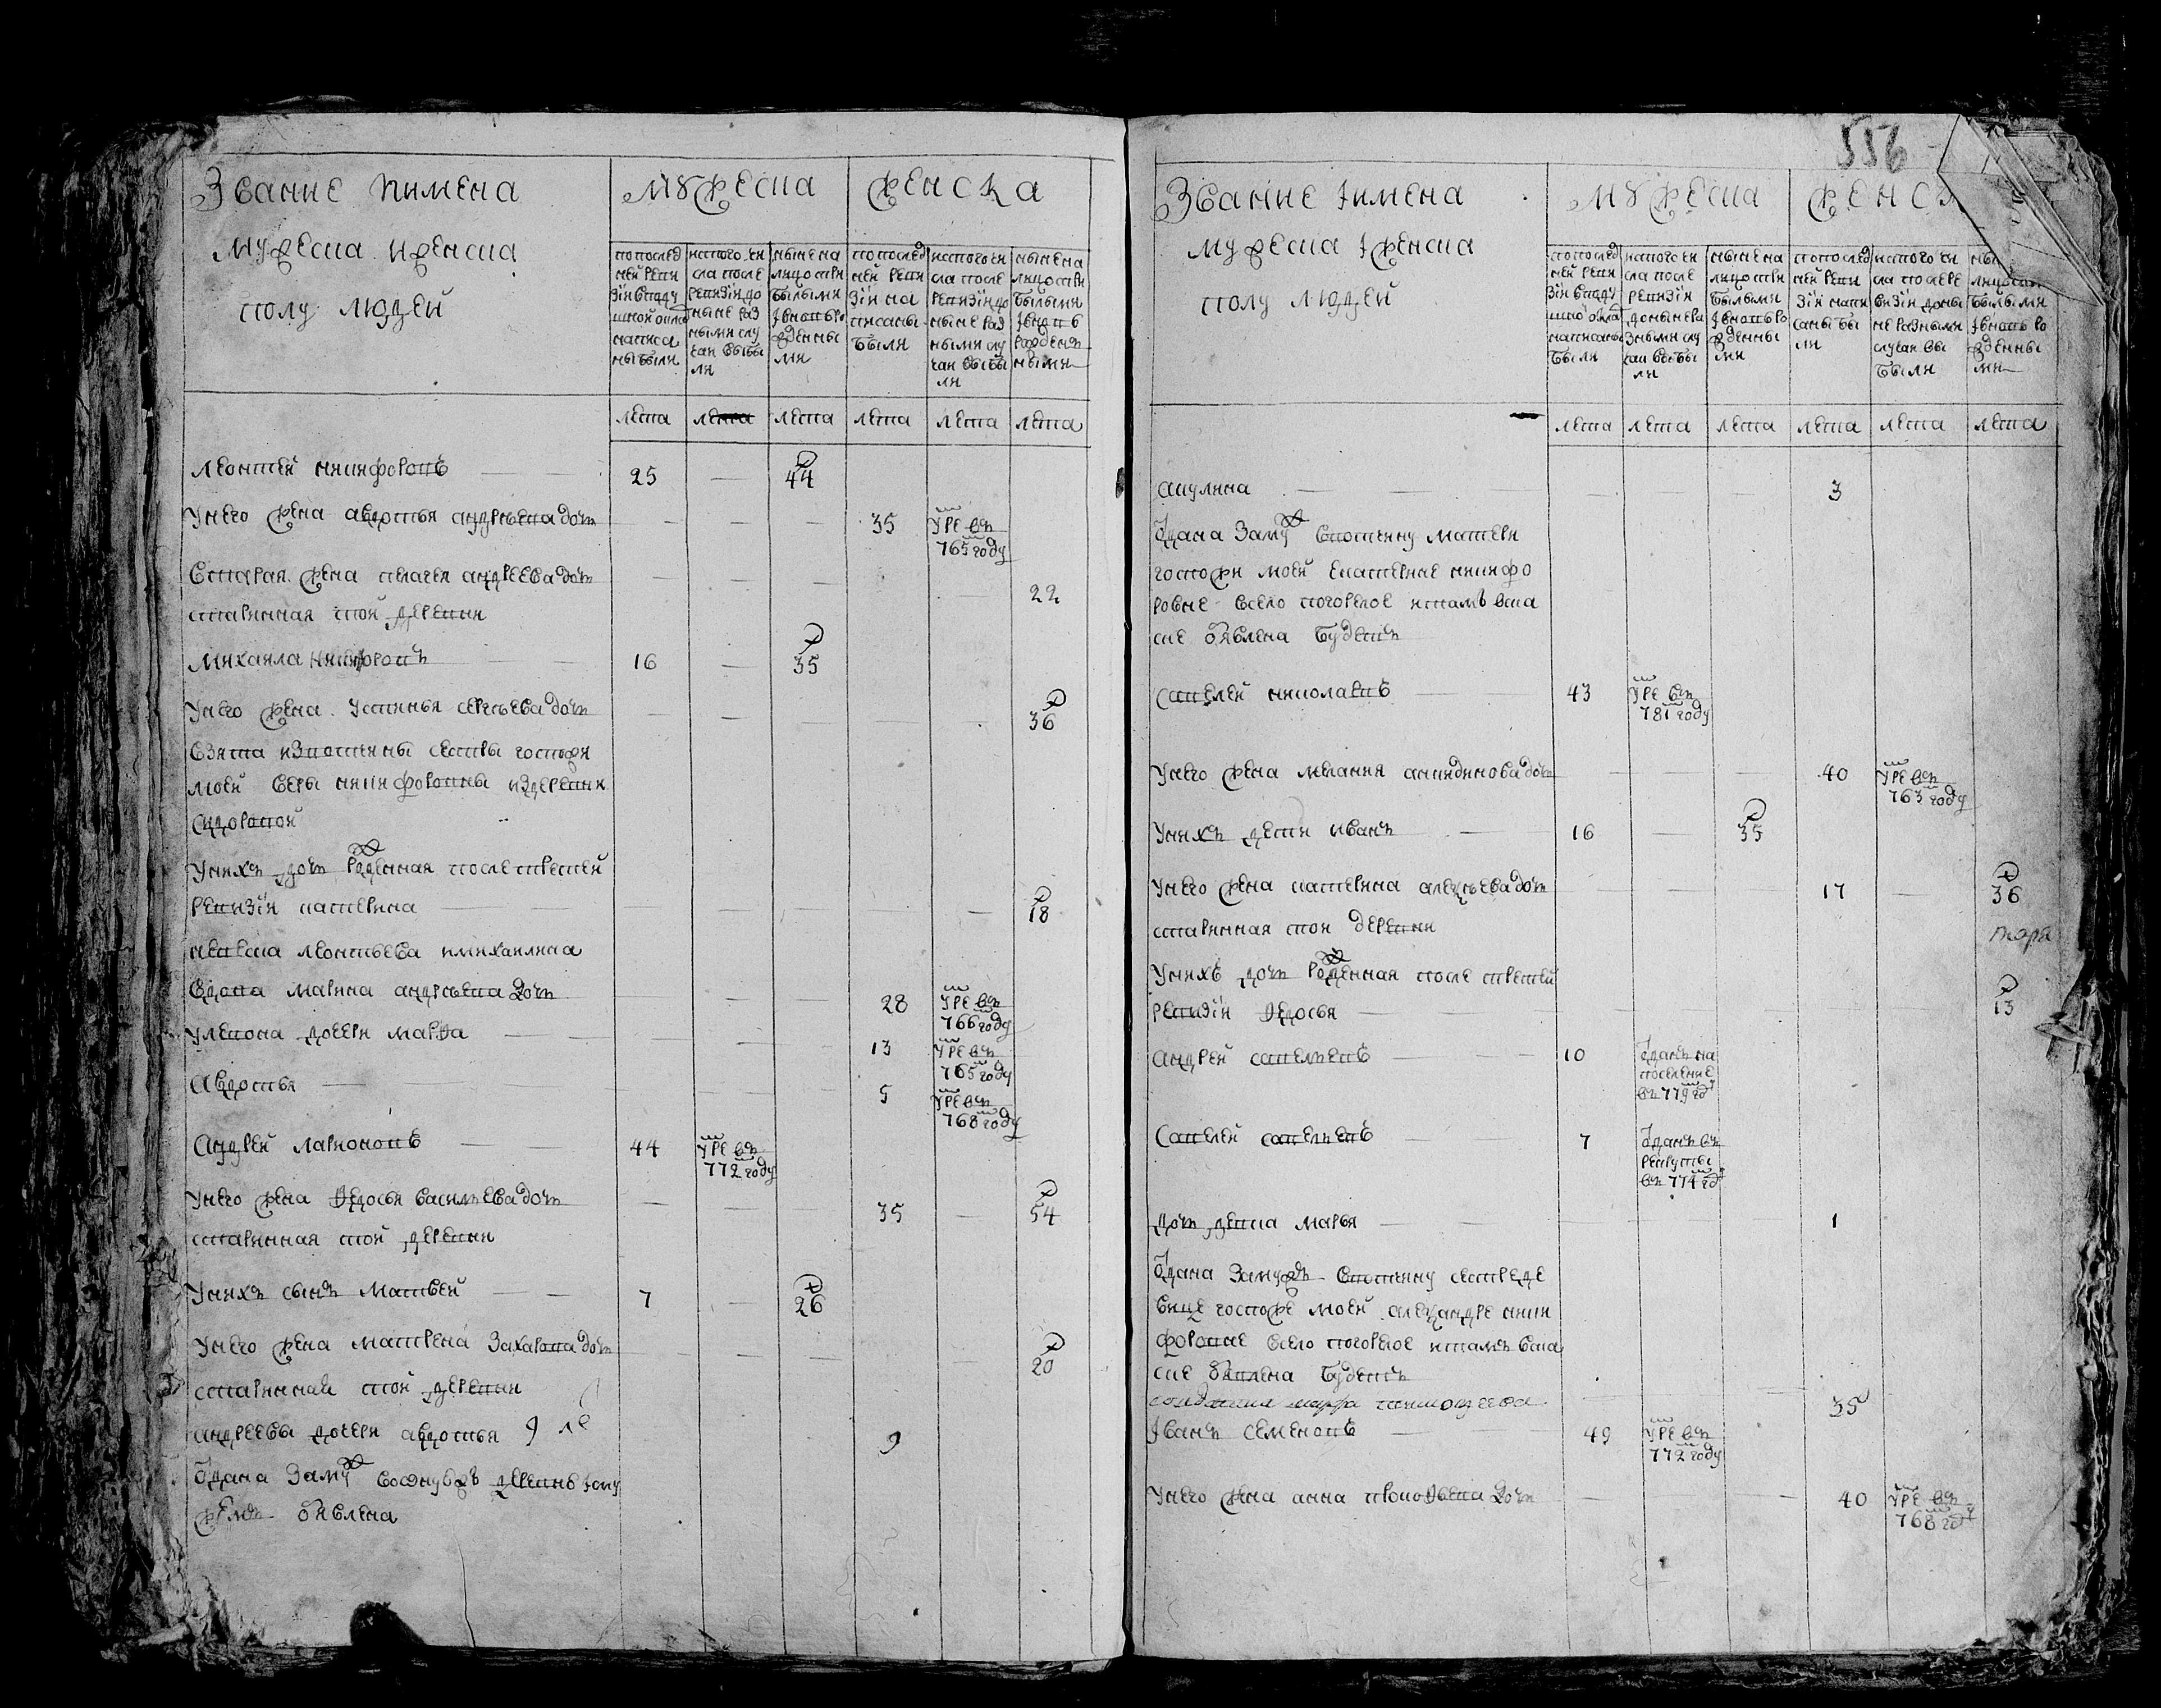 Звание иимена
мужеска иженска
полу людей
мужеска
женска
попослед
ней реви
зіи вподу
шной окла
написа
ны были
истого чи
сла после
ревизіи до
ныне раз
ными слу
чаи выбы
ли
ныне на
лицо спри
былыми
и вновь ро
жденны
ми
попослед
ней реви
зіи на
писаны
были
истого чи
сла после
ревизіи до
ныне раз
ными слу
чаи выбы
ли
ныне на
лицо спри
былыми
и вновь
рожден
ными
лета лета лета лета лета лета
леонтей никифоровъ 25 44
унего жена авдотья андреева дочь 35 уре въ
765 году
вторая жена пелагея андреева дочь 22
старинная той деревни
михаила никифоровъ 16 35
унего жена устинья сергеева дочь 36
взята извотчины сестры госпожи
моей веры никифоровны издеревни
сидоровой
унихъ дочь рожденная после третей
ревизіи катерина 18
невестка леонтьева имихаилина
вдова марина андреева дочь 28 уре въ
766 году
улевона дочери марфа 13 уре въ
765 году
авдотья 5 уре въ
768 году
андрей ларионовъ 44 уре въ
772 году
унего жена федосья васильева дочь 35 54
старинная той деревни
унихъ сынъ матвей 7 26
унего жена матрена захарова дочь 20
старинная той деревни
андреевы дочери авдотья 9 ле 9
отдана замуж деревне
объявлена
556
Звание иимена
мужеска иженска
полу людей
мужеска
попослед
ней реви
зіи вподу
шной окла
написаны
были
истого чи
сла после
ревизіи
доныне ра
зными слу
чаи выбы
ли
ныне на
лицо спри
былыми
и вновь ро
жденны
ми
попослед
ней реви
зіи напи
саны бы
ли
истого чи
сла после ре
визіи доны
не разными
случаи вы
были
былыми
и вновь ро
жденны
ми
лета лета лета лета лета лета
акулина 3
отдана замуж ввотчину матери
госпожи моей катерине никифо
ровне всело погорелое итамъ вска
ске объявлена будетъ
савелей николаевъ 43 уре въ
781 году
унего жена мелания дочь 40 уре въ
763 году
унихъ дети иванъ 16 35
унего жена катерина алексеева дочь 17 36
старинная той деревни
унихъ дочь рожденная после третьей
ревизіи федосья 13
андрей савельевъ 10 отданъ на
поселение
въ 779 год
савелей савельевъ 7 отданъ въ
рекруты
въ 774 год
дочь девка марья 1
отдана замужъ ввотчину сестре де
вице госпоже моей александре ники
форовне всело погорелое итамъ вска
ске объявлена будетъ
марфа 35
иванъ семеновъ 49 уре въ
772 году
унего жена анна прокофьева дочь 40 уре въ
768 год